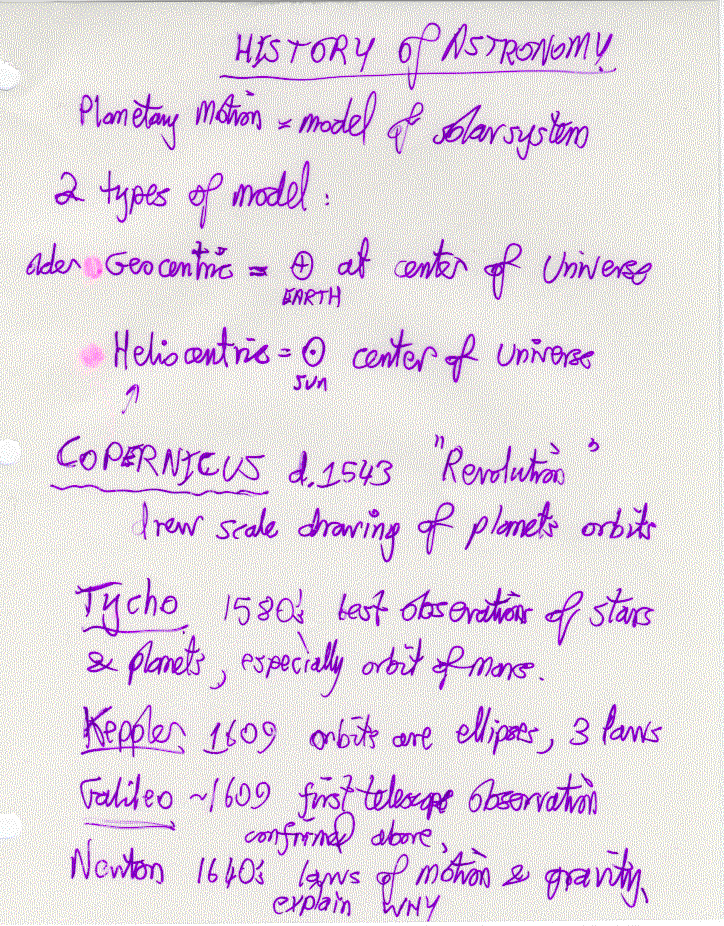 HISTORY of ASTRONOMY
Planetary Motion = model of solar system
2 types of model:
older Geocentric = ⊕ at center of Universe
EARTH
Heliocentric = ☉ center of Universe
SUN
COPERNICUS d. 1543 "Revolution"
drew scale drawing of planets orbits
Tycho 1580's best observations of stars
& planets, especially orbit of mars.
Keppler 1609 orbits are ellipses, 3 laws
Galileo ~1609 first telescope observation
confirmed above,
Newton 1640's laws of motion & gravity,
explain WHY